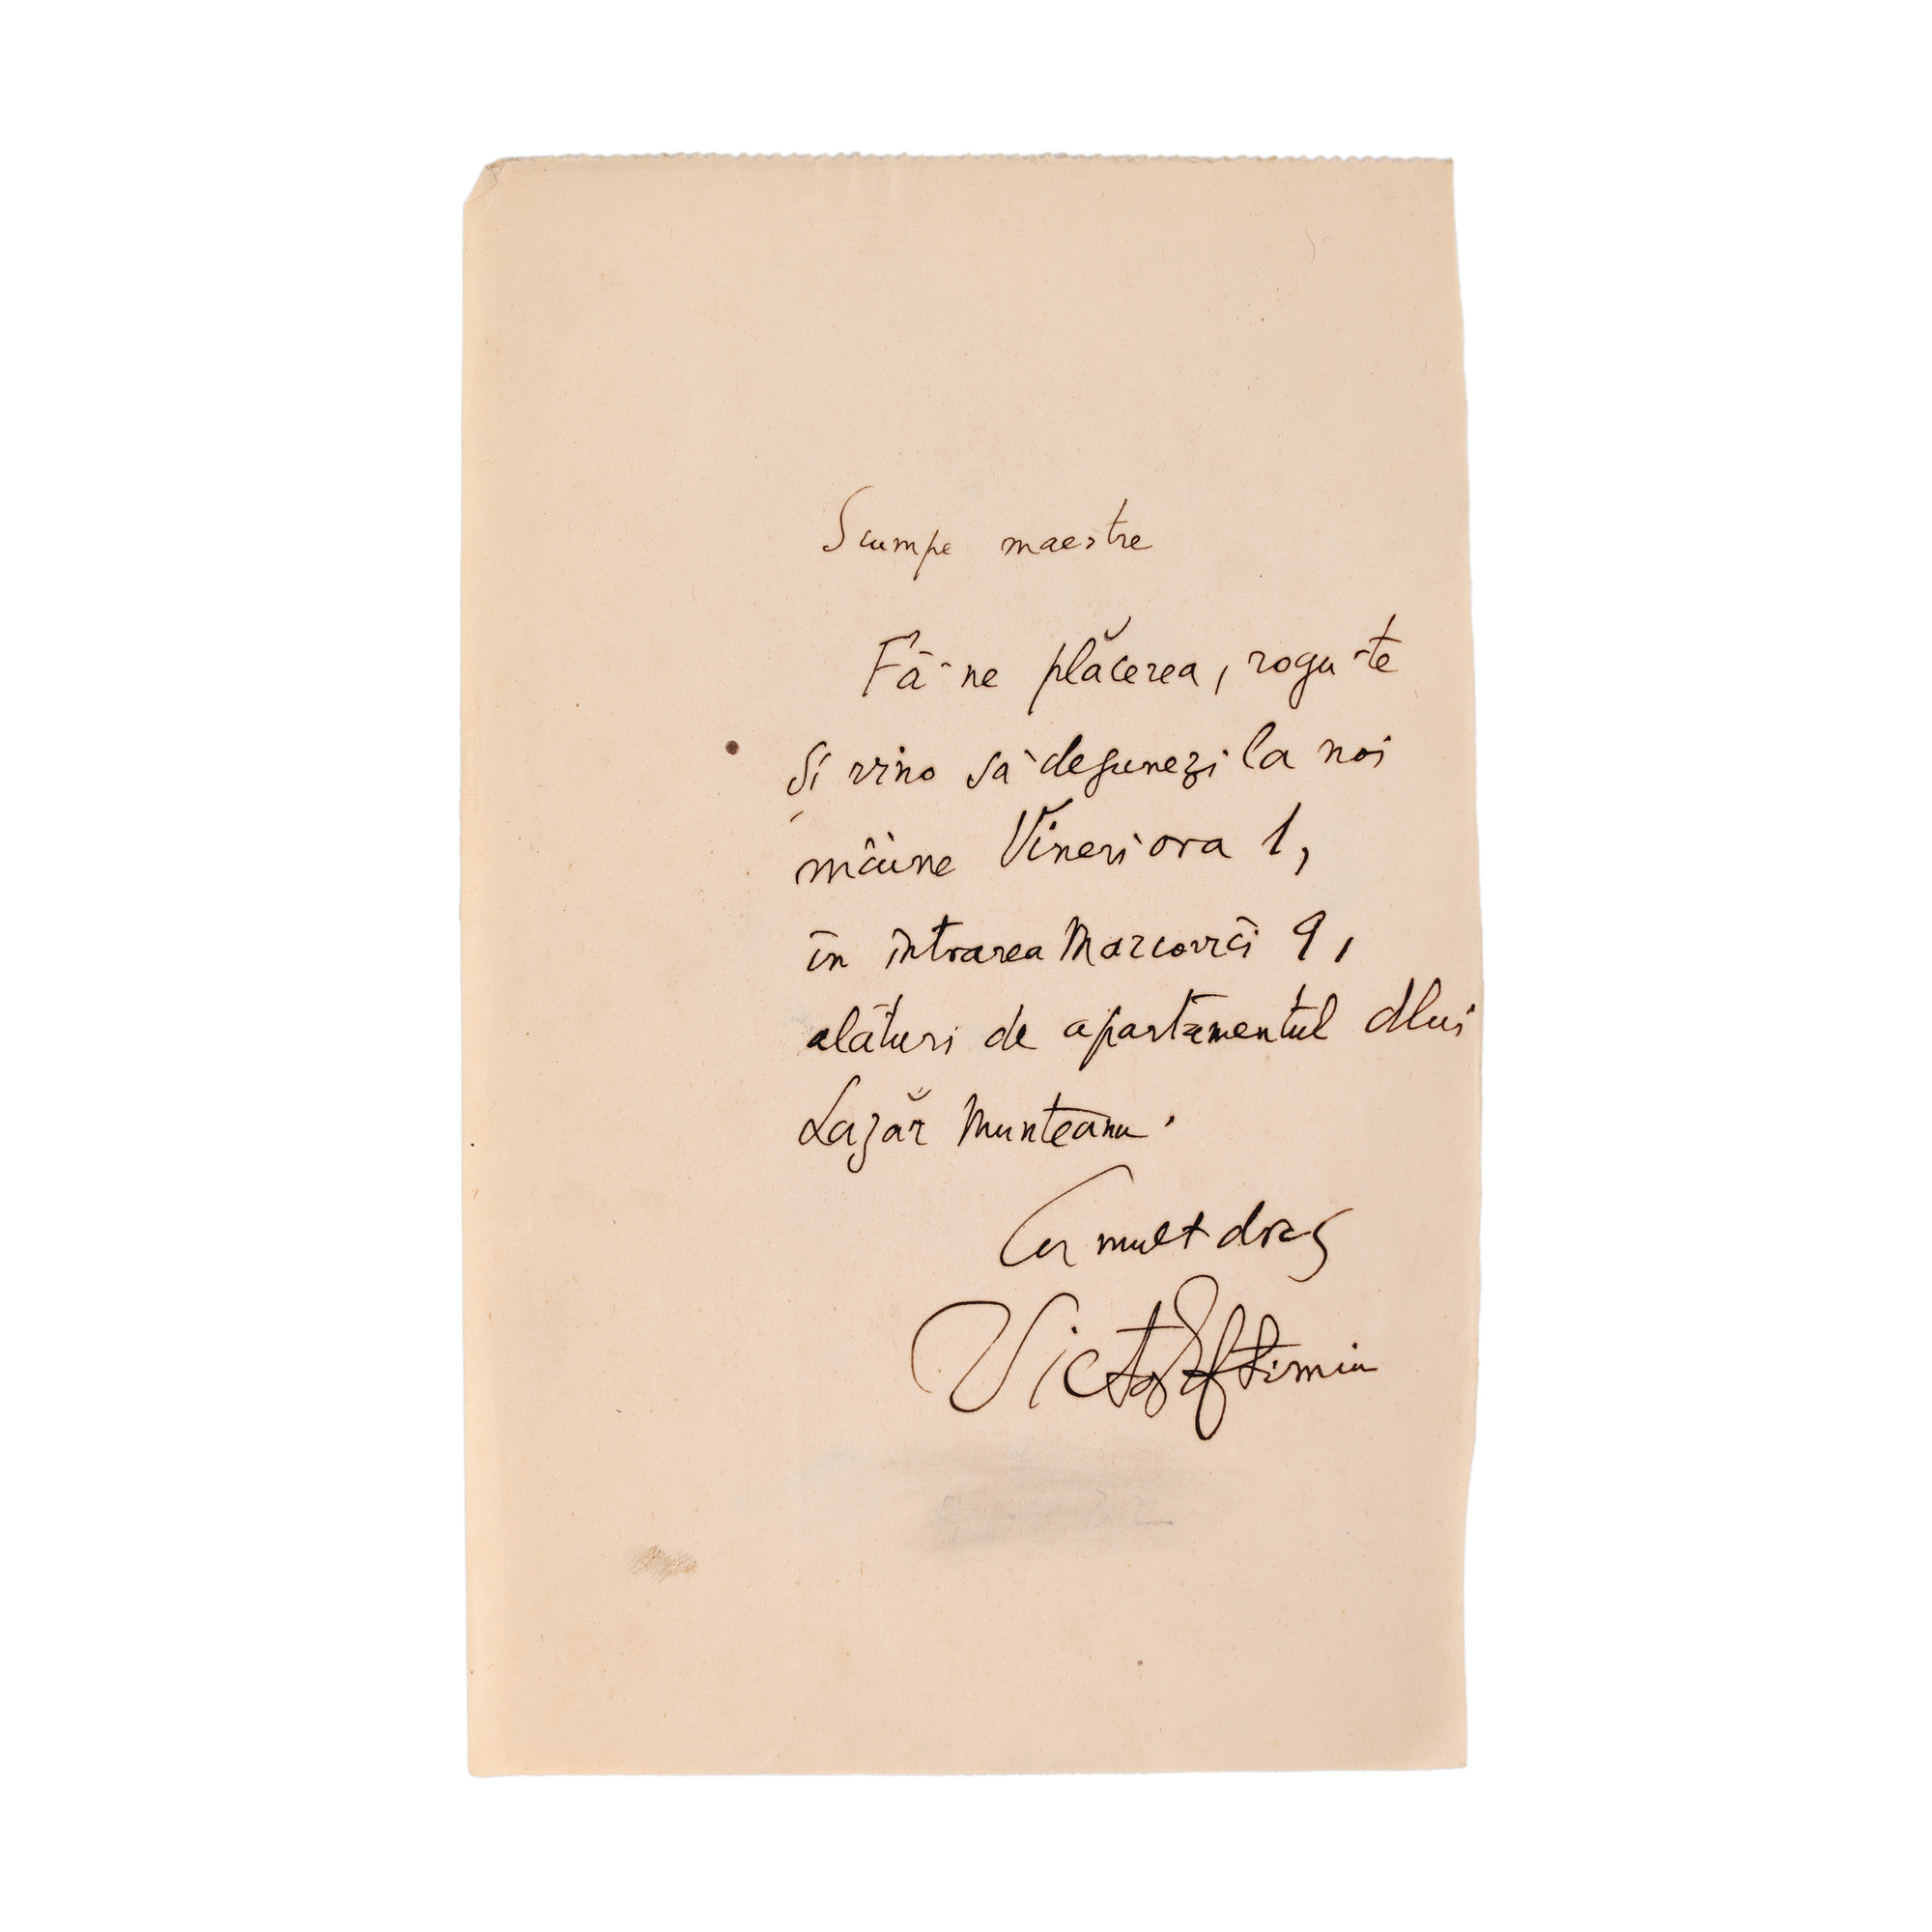 Scumpe maestre
Fă-ne plăcerea, rogu-te
și vino să dejunezi la noi
mâine Vineri ora 1,
în intrarea Marcovici 9,
alături de apartamentul dlui
Lazăr Munteanu.
Cu mult drag
Victor Eftimiu